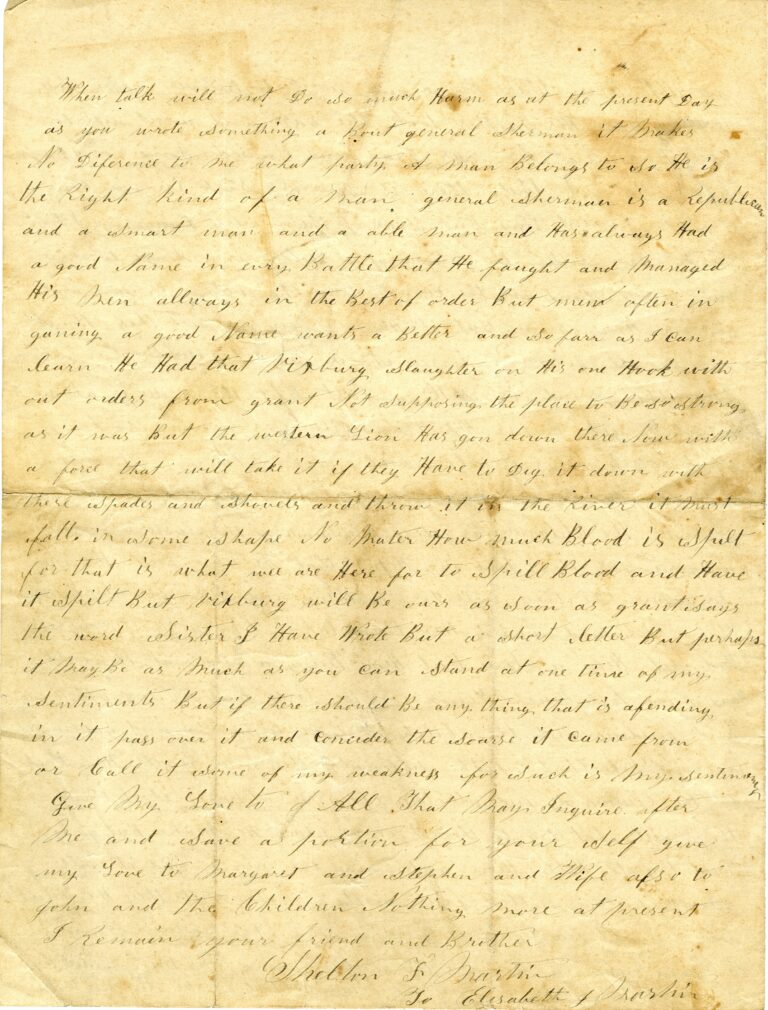 When talk will not Do so much Harm as at the present Day
as you wrote something a Bout general Sherman it Makes
No Diference to me what party A man Belongs to so He is
the Right kind of a man general Sherman is a Republican
and a smart man and a able man and Has always Had
a good Name in evry Battle that He faught and Managed
His Men allways in the Best of order But men often in
ganing a good Name wants a Better and so farr as I can
learn He Had that Vixburg Slaughter on His one Hook with
out orders from grant Not Supposing the place to Be so strong
as it was But the western Lion Has gon down there Now with
a force that will take it if they Have to Dig it down with
there Spades and Shovels and throw it in the River it Must
fall in some shape No Mater How much Blood is Spilt
for that is what wee are Here for to Spill Blood and Have
it Spilt But Vixburg will Be ours as soon as grant says
the word Sister I Have Wrote But a short letter But perhaps
it May Be as Much as you can Stand at one time of my
Sentiments But if there should Be any thing that is afending
in it pass over it and concider the soarse it came from
or Call it some of my weakness for such is My sentiments
Give My Love to All That May Inquire after
Me and Save a portion for your Self give
my Love to Margaret and Stephen and Wife also to
John and the Children Nothing more at present
I Remain your friend and Brother
Shelton F Martin
To Elisabeth J Martin